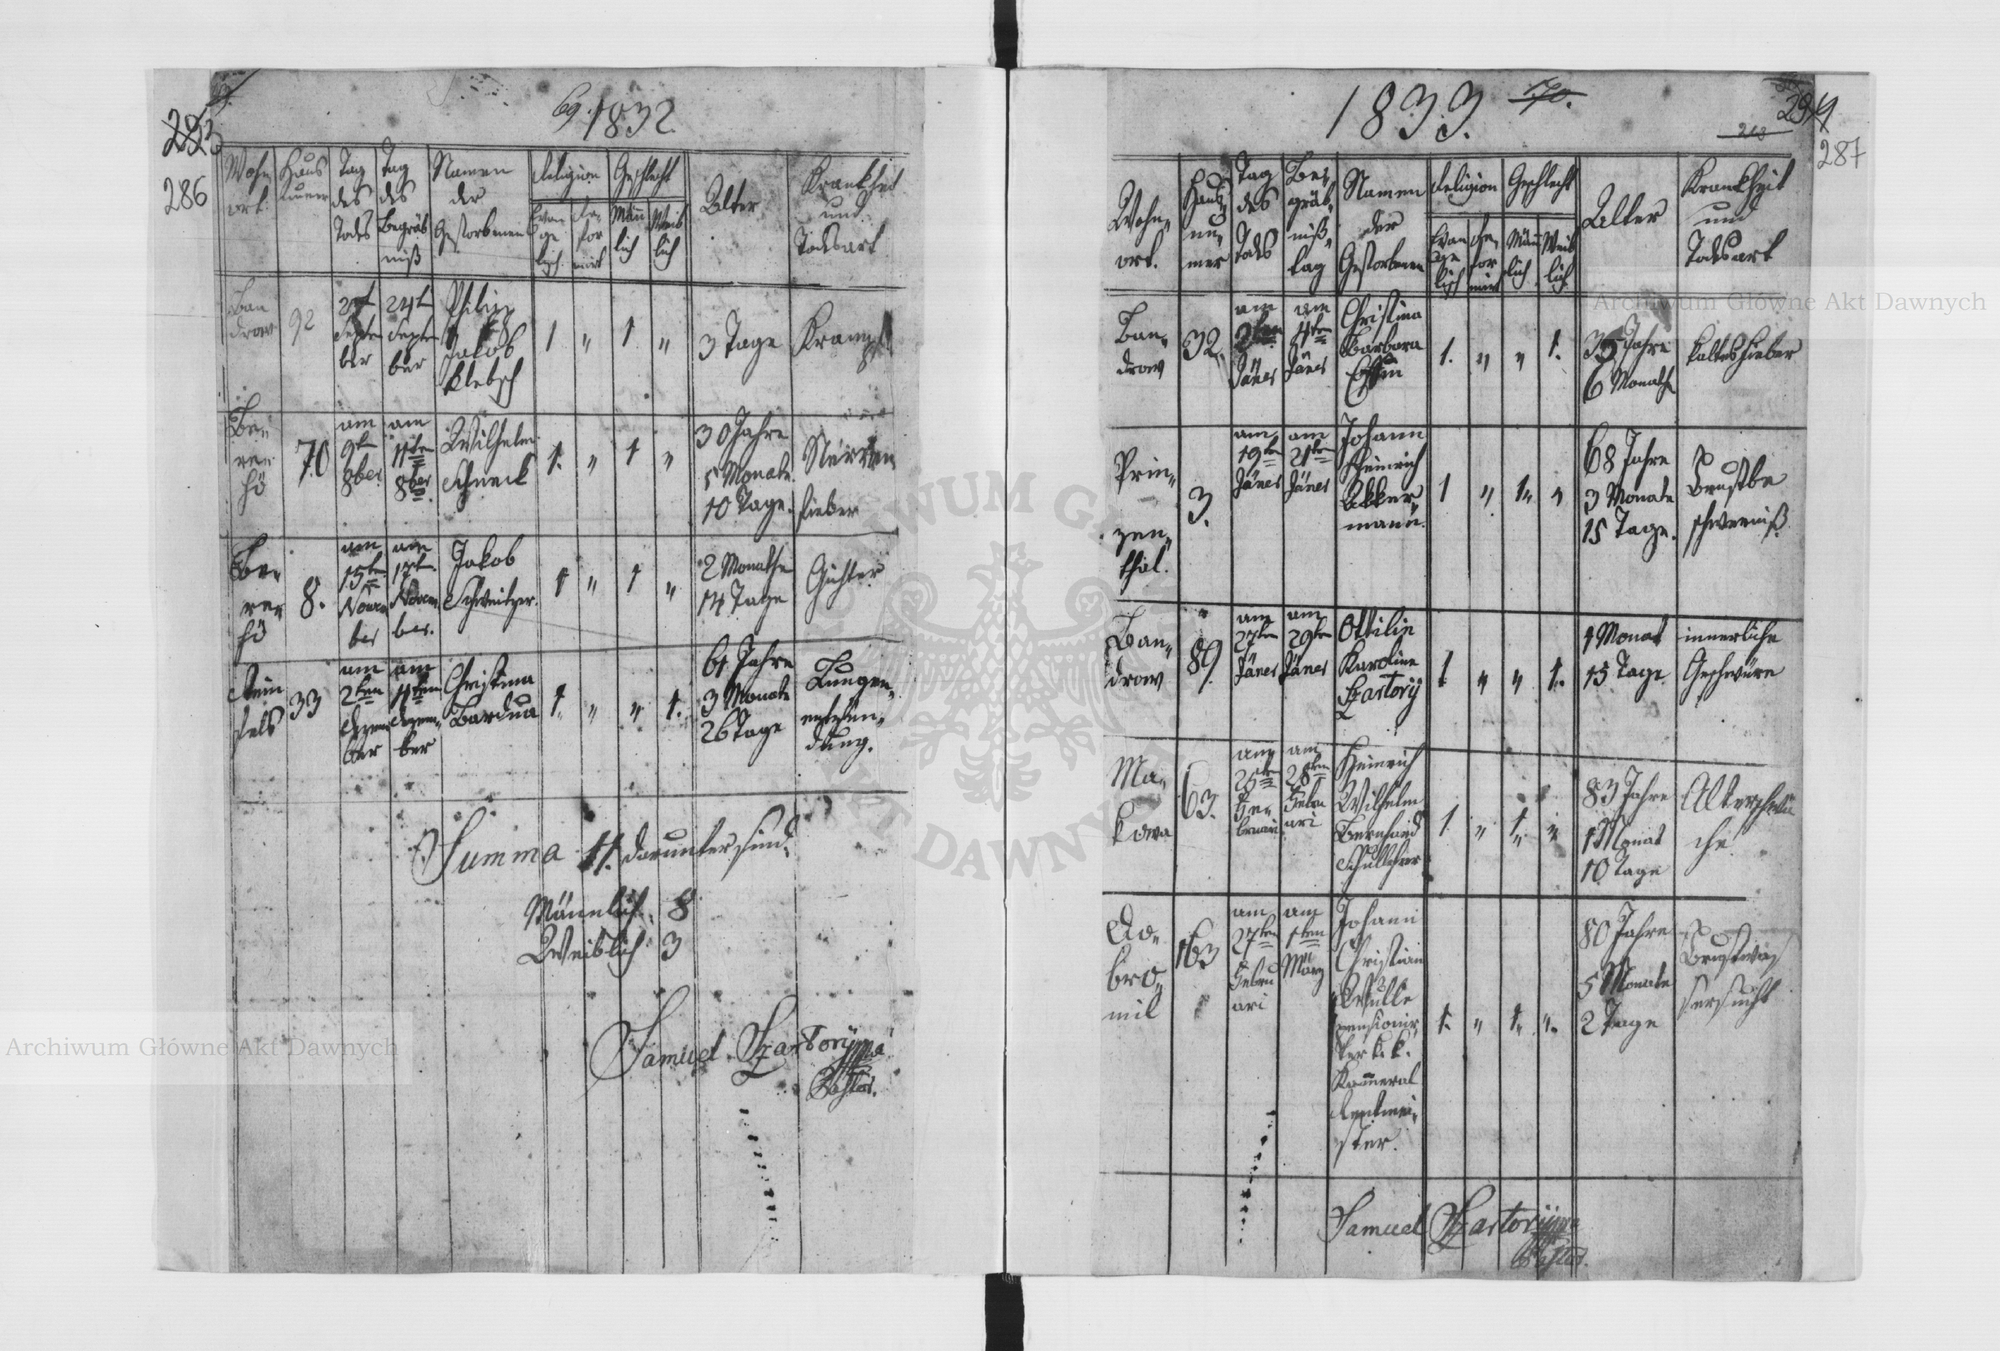 293
286
69.
1832
Wohn
ort.
Haus
Numer
Tag
des
Todes
Tag
des
Begräb
niß
Namen
der
Gestorbenen
Religion
Evan
ge
lisch
Re
for
mirt
Geschlecht
Män
lich
Weib
lich
Alter
Krankheit
und
Todesart
Ban
drow
92
Septe
ber
24t
Septe
ber
Philip
Jakob
Klebsch
1
"
1
"
3 Tage
Krampf
Be-
re-
hö
70
am
9t
8ber
am
11ten
8ber
Wilhelm
Schneck
1.
"
1
"
30 Jahre
5 Monate
10 Tage.
Nerven
fieber
Be-
re-
hö
8.
am
15ten
Novem
ber
am
17ten
Novem
ber.
Jakob
Schweitzer.
1
"
1
"
2 Monathe
14 Tage
Gichter
Stein
fels
33
am
2ten
Dezem
ber
am
4ten
Dezem-
ber
Christina
Bardua
1.
"
"
1.
61 Jahre
3 Monate
26 Tage
Lungen-
entzün-
dung.
Summa 11. darunter sind.
Mänlich. 8
Weiblich. 3
Samuel Szartory mp
Pastor.
1833.
170.
294
287
Wohn-
ort.
Haus
nu-
mer
Tag
des
Todes
Be-
gräb-
niß-
tag
Namen
der
Gestorbenen
Religion
Evan
ge
lisch
Re-
for
mirt
Geschlecht
Män
lich
Weib
lich
Alter
Krankheit
und
Todesart
Ban-
drow
32.
am
2ten
Jäner
am
4ten
Jäner
Christina
Barbara
1.
"
"
1.
35 Jahre
6 Monathe
kaltes Fieber
Prin-
zen-
thal.
3.
am
19ten
Jäner
am
21ten
Jäner
Johann
Heinrich
Akker
mann.
1
"
1.
"
68 Jahre
3 Monate
15 Tage.
Brustbe
schwerniß.
Ban-
drow
89
am
27ten
Jäner
am
29ten
Jäner
Ottilie
Karoline
Szartory
1
"
"
1.
1 Monat
15 Tage
innerliche
Geschwüre
Ma-
kowa
63.
am
25ten
Fe-
bruari
am
28ten
Febru
ari
Heinrich
Wilhelm
Bernhard
Schullehrer
1.
"
1.
"
83 Jahre
1 Monat
10 Tage
Altersschwä
che
Do-
bro-
mil
163
am
27ten
Febru
ari
am
1ten
März
Johann
Christian
Wulle
pensionir
ter k. k.
Kammeral
Rentmei-
ster.
1.
"
1.
".
80 Jahre
5 Monate
2 Tage
Brustwas
sersucht
Samuel Szartory mp
Pastor.
Archiwum Główne Akt Dawnych
Archiwum Główne Akt Dawnych
ARCHIWUM GŁÓWNE AKT DAWNYCH